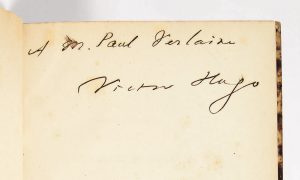 A M. Paul Verlaine
Victor Hugo